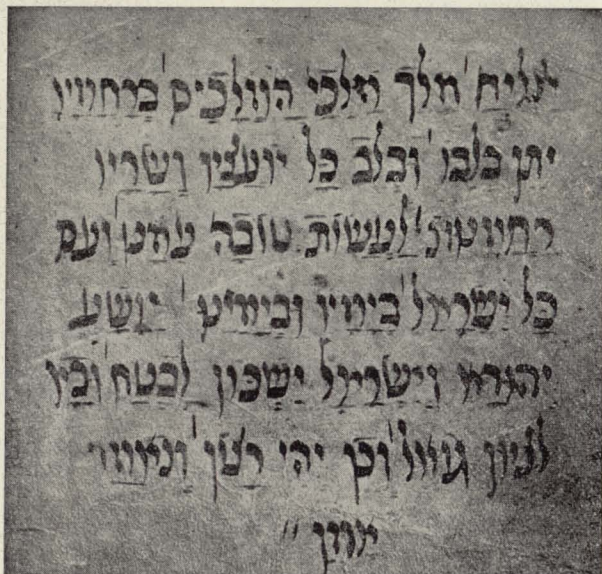 יצליח מלך מלכי המלכים ברחמיו
יתן בלבו ובלב כל יועציו ושריו
רחמנות לעשות טובה עמנו ועם
כל ישראל בימיו ובימינו יושע
יהודה וישראל ישכון לבטח ובא
לציון גואל וכן יהי רצון ונאמר
אמן